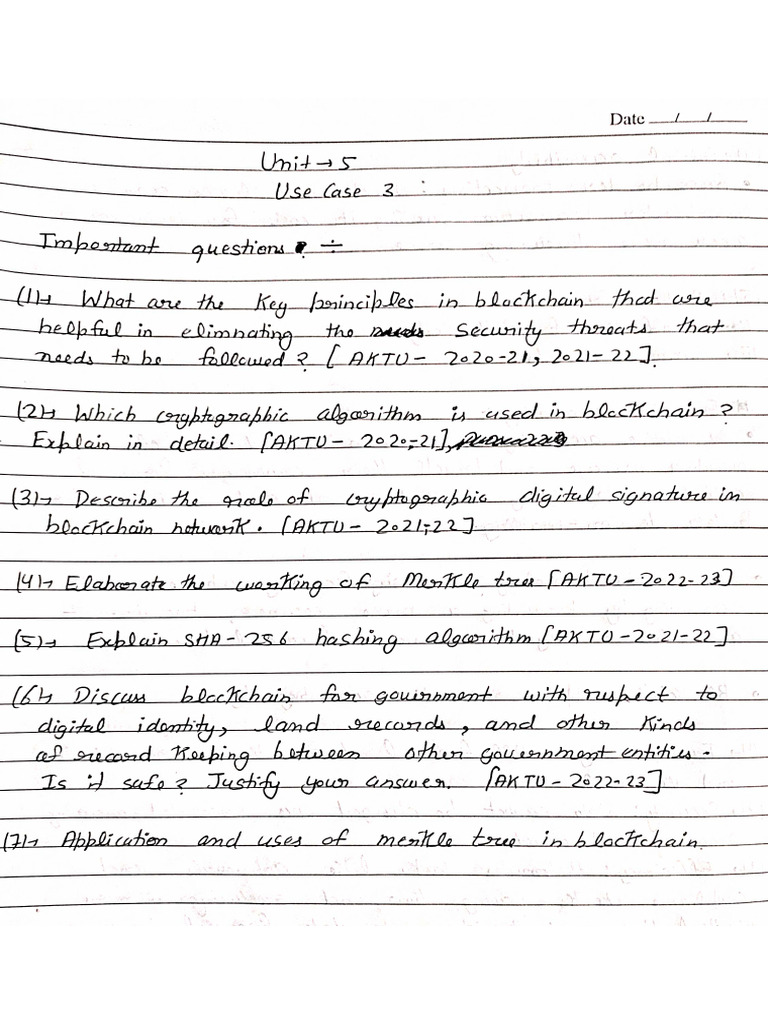 Date __/__/__
Unit → 5
Use Case 3 :
Important questions ÷
(1)→ What are the Key principles in blockchain that are
helpful in elimnating the security threats that
needs to be followed? [AKTU- 2020-21, 2021-22].
(2)→ Which cryptographic algorithm is used in blockchain ?
Explain in detail. [AKTU- 2020-21],
(3)→ Describe the role of cryptographic digital signature in
blockchain network. [AKTU- 2021-22]
(4)→ Elaborate the working of Merkle tree [AKTU-2022-23]
(5)→ Explain SHA-256 hashing algorithm [AKTU-2021-22]
(6)→ Discuss blockchain for government with respect to
digital identity, land records, and other kinds
of record keeping between other government entities.
Is it safe? Justify your answer. [AKTU-2022-23]
(7)→ Application and uses of merkle tree in blockchain.